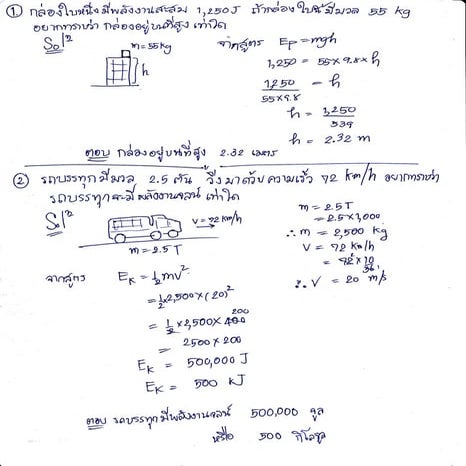 ① กล่องใบหนึ่งมีพลังงานสะสม 1,250 J ถ้ากล่องใบนี้มีมวล 55 kg
อยากทราบว่า กล่องอยู่บนที่สูง เท่าใด
Solⁿ
m = 55 kg
h
จากสูตร Ep = mgh
1,250 = 55 × 9.8 × h
1,250 / 55 × 9.8 = h
h = 1,250 / 539
h = 2.32 m
ตอบ กล่องอยู่บนที่สูง 2.32 เมตร
② รถบรรทุกมีมวล 2.5 ตัน วิ่งมาด้วยความเร็ว 72 km/h อยากทราบว่า
รถบรรทุกจะมีพลังงานจลน์ เท่าใด
Solⁿ
V = 72 km/h
m = 2.5 T
m = 2.5 T
= 2.5 × 1,000
∴ m = 2,500 kg
V = 72 km/h
= 72 × 10 / 36
∴ V = 20 m/s
จากสูตร EK = ½mV²
= ½ × 2,500 × (20)²
= ½ × 2,500 × 400 200
= 2500 × 200
EK = 500,000 J
EK = 500 kJ
ตอบ รถบรรทุกมีพลังงานจลน์ 500,000 จูล
หรือ 500 กิโลจูล